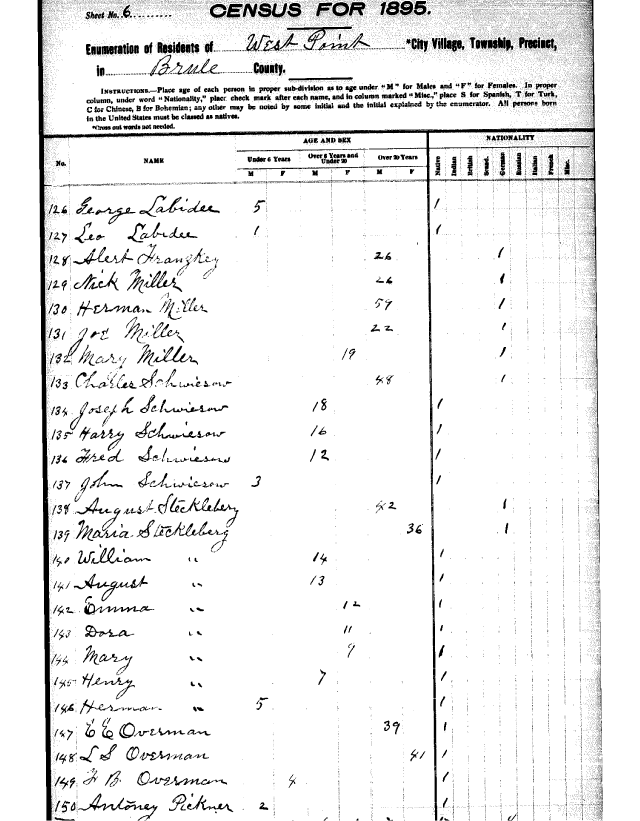 Sheet No. 6
CENSUS FOR 1895.
Enumeration of Residents of West Point *City Village, Township, Precinct,
in Brule County.
INSTRUCTIONS.—Place age of each person in proper sub-division as to age under "M" for Males and "F" for Females. In proper
column, under word "Nationality," place check mark after each name, and in column marked "Misc.," place S for Spanish, T for Turk,
C for Chinese, B for Bohemian; any other may be noted by some initial and the initial explained by the enumerator. All persons born
in the United States must be classed as natives.
*Cross out words not needed.
AGE AND SEX NATIONALITY
No. NAME Under 6 Years Over 6 Years and Under 20 Over 20 Years Native Indian British Scand. German Russian Italian French Misc.
M F M F M F
126 George Labidee 5 /
127 Leo Labidee 1 /
128 Alert Franzkey 26 /
129 Nick Miller 26 /
130 Herman Miller 59 /
131 Joe Miller 22 /
132 Mary Miller 19 /
133 Charles Schwiesow 48 /
134 Joseph Schwiesow 18 /
135 Harry Schwiesow 16 /
136 Fred Schwiesow 12 /
137 John Schwiesow 3 /
138 August Steckleberg 42 /
139 Maria Steckleberg 36 /
140 William " 14 /
141 August " 13 /
142 Emma " 12 /
143 Dora " 11 /
144 Mary " 9 /
145 Henry " 7 /
146 Herman " 5 /
147 E E Overman 39 /
148 L S Overman 41 /
149 F B Overman 4 /
150 Antoney Pickner 2 /